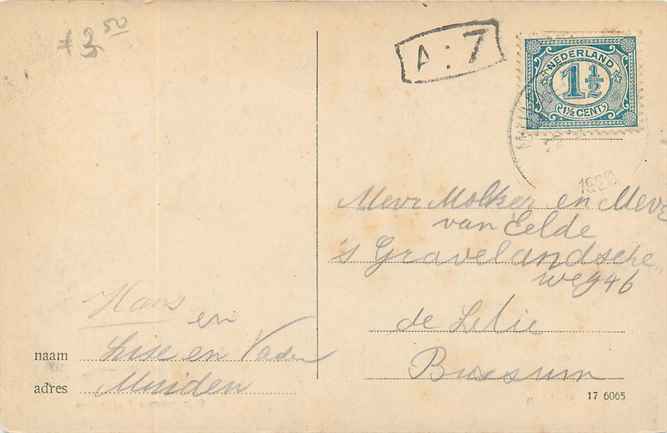 3.50
A : 7
NEDERLAND
1½
1½ CENT
Mevr Molker en Mevr
van Eelde
's Gravelandsche
weg 46
de Lelie
Bussum
Hans
en
naam Lise en Vader
adres Muiden
17 6065